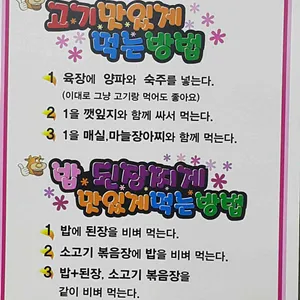 고기맛있게
먹는방법
1 육장에 양파와 숙주를 넣는다.
(이대로 그냥 고기랑 먹어도 좋아요)
2 1을 깻잎지와 함께 싸서 먹는다.
3 1을 매실,마늘장아찌와 함께 먹는다.
밥 된장찌게
맛있게먹는방법
1 밥에 된장을 비벼 먹는다.
2 소고기 볶음장에 밥을 비벼 먹는다.
3 밥+된장, 소고기 볶음장을
같이 비벼 먹는다.